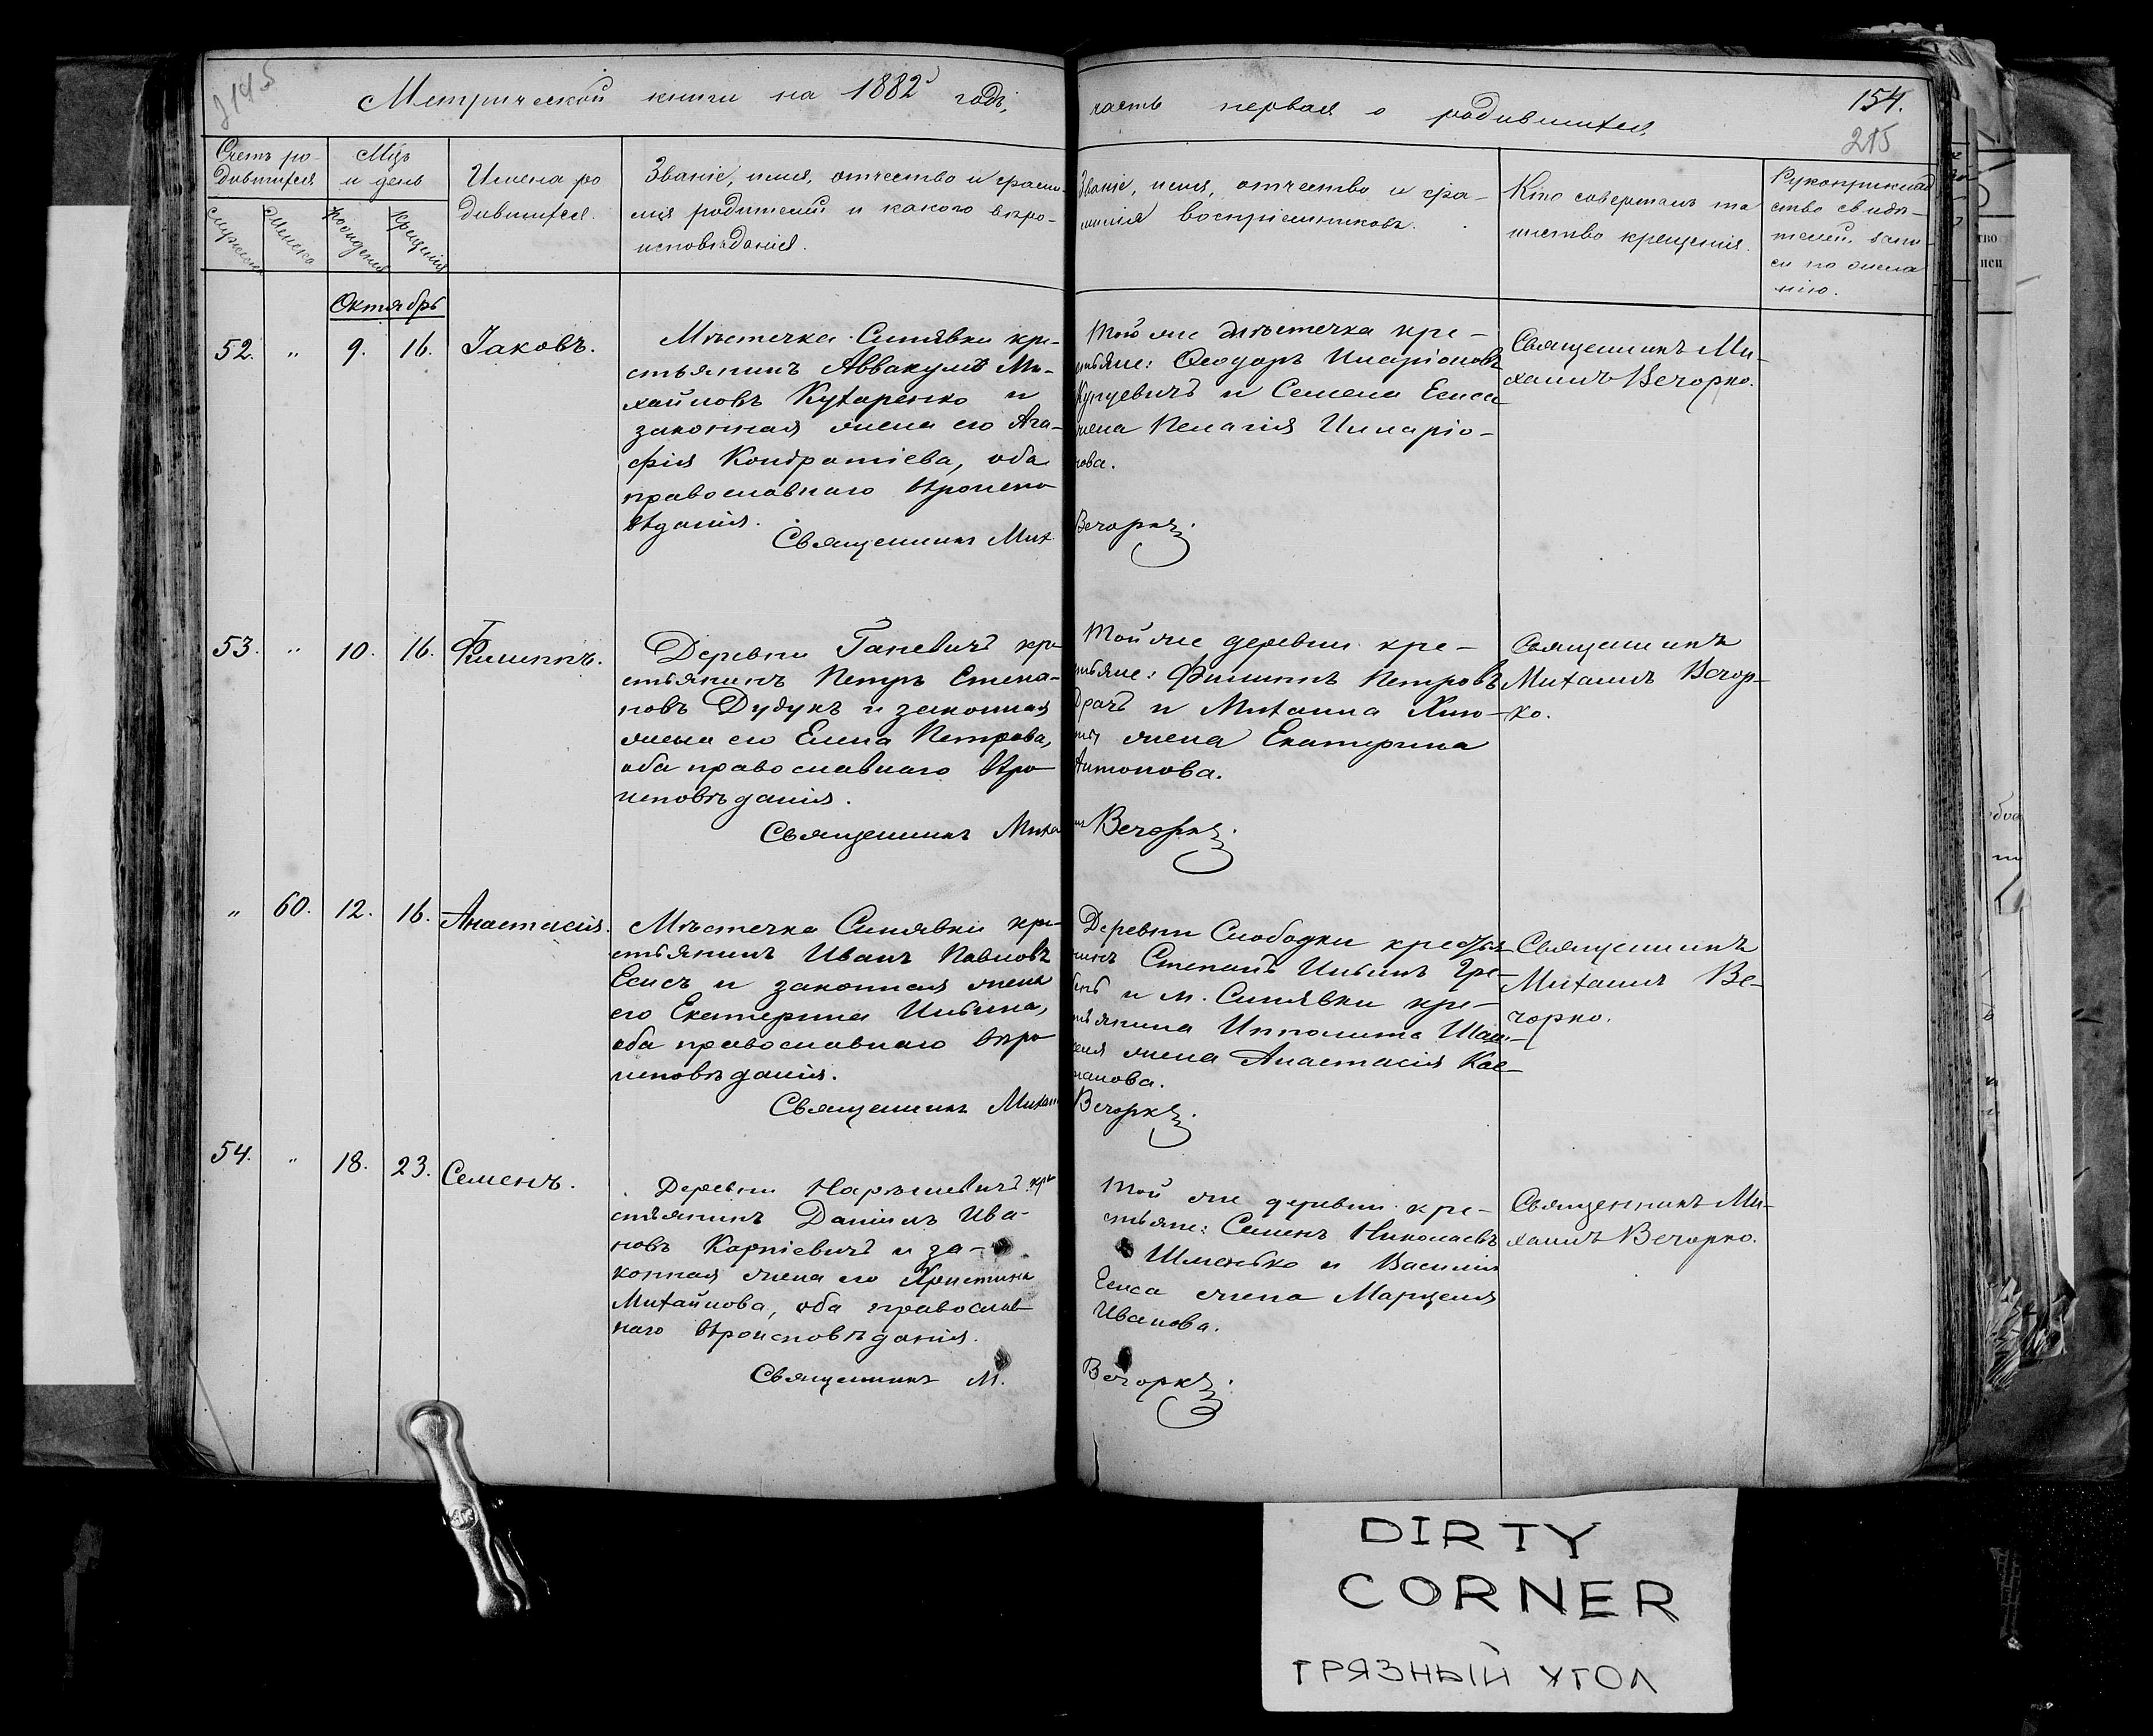 Метрической книги на 1882 годъ,
часть первая о родившихся
154.
215
Счетъ ро-
дившихся
Мцъ
и день
Имена ро
дившихся.
Званіе, имя, отчество и фами-
лія родителей и какого вѣро-
исповѣданія.
Званіе, имя, отчество и фа-
милія воспріемниковъ.
Кто совершалъ та
инство крещенія.
Рукоприклад
ство свидѣ-
телей запи-
си по жела
нію.
Мужеска
Женска
Рожденія
Крещенія
Октябрь
52. „ 9. 16. Іаковъ.
Мѣстечка Синявки кре-
стьянинъ Аввакумъ Ми-
хайловъ Кухаренко и
законная жена его Ага-
фія Кондратіева, оба
православнаго вѣроиспо
вѣданія.
Священникъ Мих.
Той же мѣстечка кре-
стьяне: Ѳеодоръ Иларіоновъ
Кунцевичъ и Семена Елиса
жена Пелагія Иларіо-
нова.
Вечорко.
Священникъ Ми-
хаилъ Вечорко.
53. „ 10. 16. Филиппъ.
Деревни Ганевичъ кре
стьянинъ Петръ Степа-
новъ Дудукъ и законная
жена его Елена Петрова,
оба православнаго вѣро-
исповѣданія.
Священникъ Миха
Той же деревни кре-
стьяне: Филиппъ Петровъ
Драчъ и Михаила
жена Екатерина
Антонова.
илъ Вечорко.
Священникъ
Михаилъ Вечор-
ко.
„ 60. 12. 16. Анастасія.
Мѣстечка Синявки кре-
стьянинъ Иванъ Павловъ
Елисъ и законная жена
его Екатерина Ильина,
оба православнаго вѣро
исповѣданія.
Священникъ Михаилъ
Деревни Слободки крестья-
нинъ Степанъ Ильинъ Гре-
бень и м. Синявки кре-
стьянина Ипполита
жена Анастасія Кас-
Вечорко.
Священникъ
Михаилъ Ве-
чорко.
54. „ 18. 23. Семенъ.
Деревни кре
стьянинъ Даніилъ Ива-
новъ Карпіевичъ и за-
конная жена его Христина
Михайлова, оба православ-
наго вѣроисповѣданія.
Священникъ М.
Той же деревни кре-
стьяне: Семенъ Николаевъ
Шменько и Василія
Елиса жена Марцеля
Иванова.
Вечорко.
Священникъ Ми-
хаилъ Вечорко.
DIRTY
CORNER
ГРЯЗНЫЙ УГОЛ